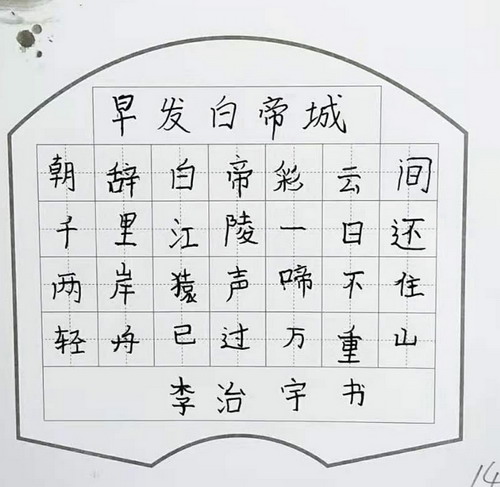 早发白帝城
朝辞白帝彩云间
千里江陵一日还
两岸猿声啼不住
轻舟已过万重山
李治宇书
14